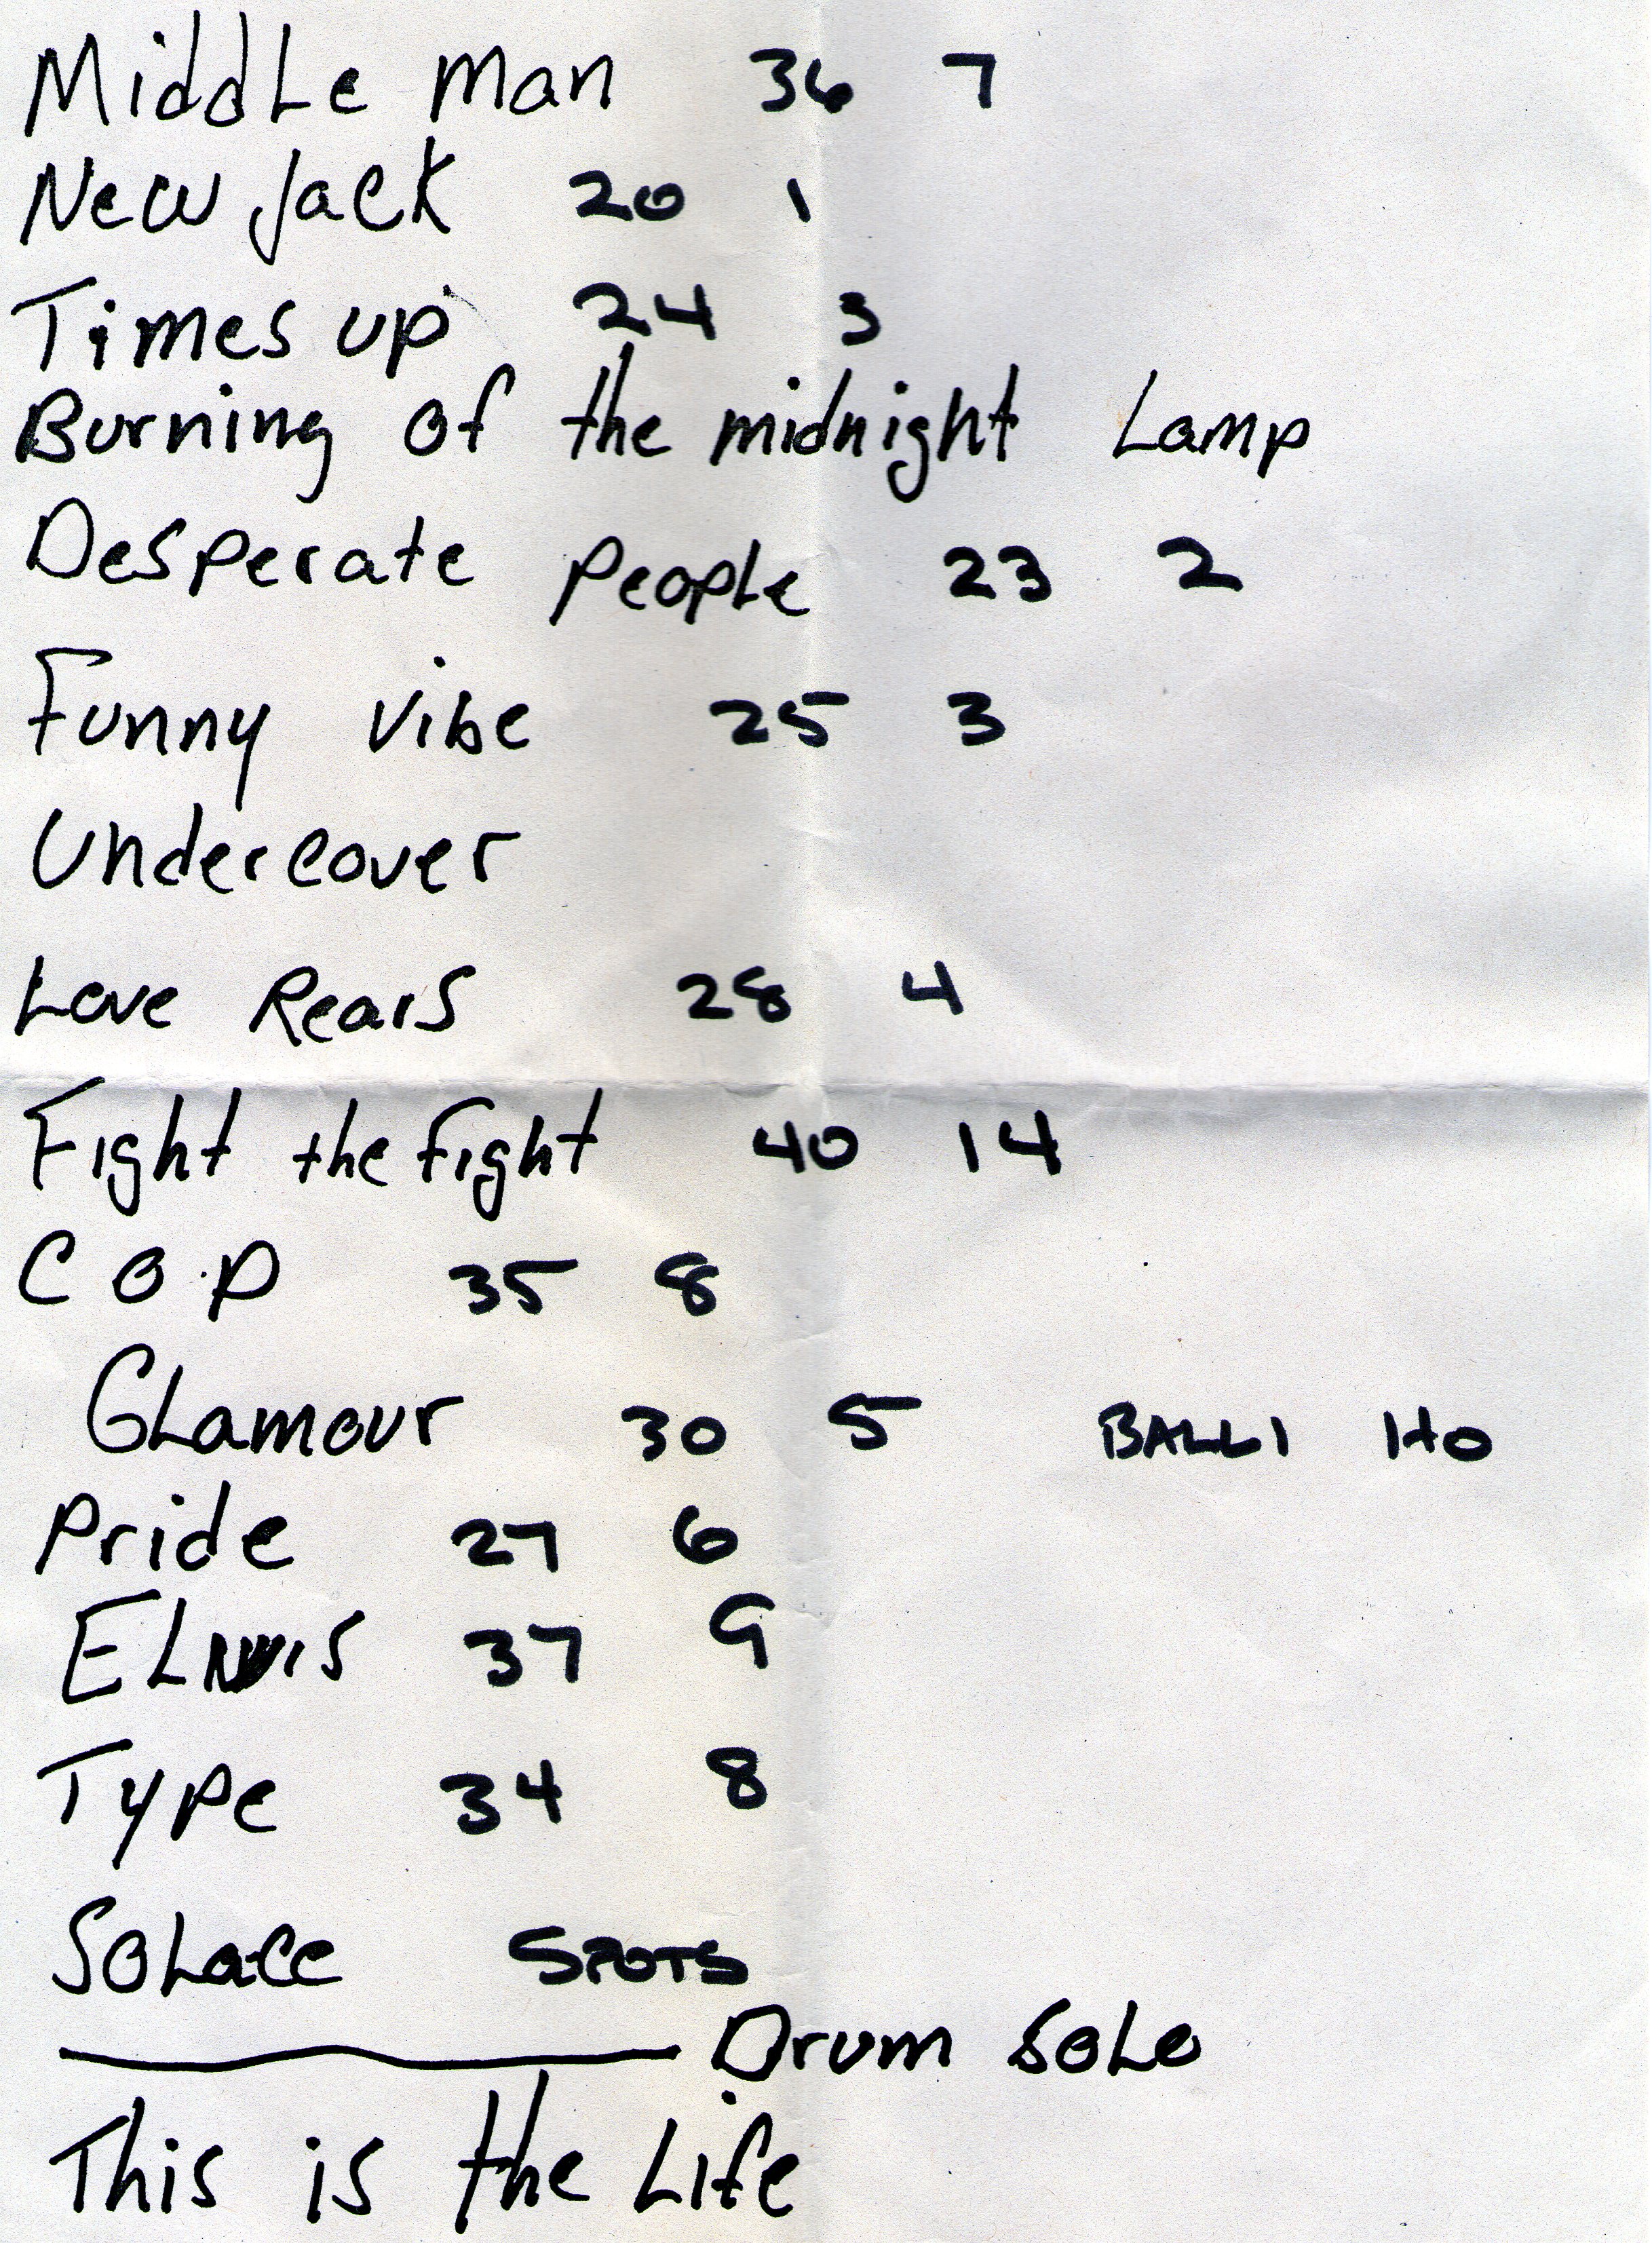 MiddLe Man 36 7
New Jack 20 1
Times up 24 3
Burning of the midnight Lamp
Desperate People 23 2
Funny Vibe 25 3
Undercover
Love Rears 28 4
Fight the Fight 40 14
C O P 35 8
GLamour 30 5 BALLI
Pride 27 6
37 9
Type 34 8
SoLace SPOTS
Drum SoLo
This is the Life